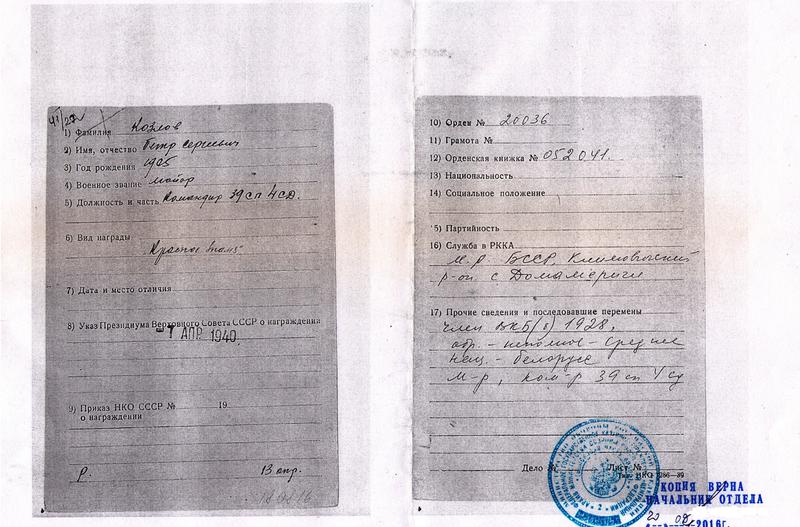 41/27
1) Фамилия Козлов
2) Имя, отчество Петр Сергеевич
3) Год рождения 1905
4) Военное звание майор
5) Должность и часть Командир 39 сп 4 сд.
6) Вид награды
Красное знамя
7) Дата и место отличия
8) Указ Президиума Верховного Совета СССР о награждении
7 АПР 1940
9) Приказ НКО СССР № 19
о награждении
р. 13 апр.
10) Орден № 20036
11) Грамота №
12) Орденская книжка № 052041.
13) Национальность
14) Социальное положение
15) Партийность
16) Служба в РККА
м.р. БССР, Климовичский
р-он с Домамеричи
17) Прочие сведения и последовавшие перемены
член ВКП(б) 1928,
обр. - неполное - среднее
нац. - белорус
м-р, ком-р 39 сп 4 сд
Дело № Лист №
КОПИЯ ВЕРНА
НАЧАЛЬНИК ОТДЕЛА
2016г.